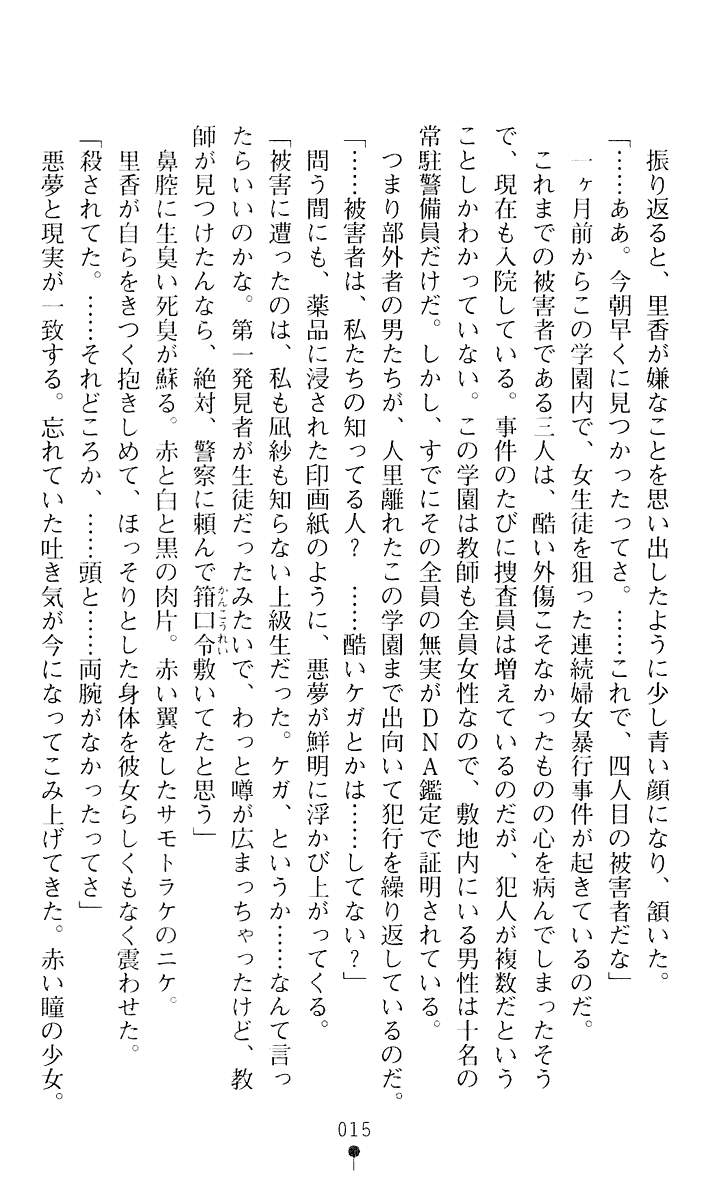 振り返ると、里香が嫌なことを思い出したように少し青い顔になり、頷いた。
「……ああ。今朝早くに見つかったってさ。……これで、四人目の被害者だな」
一ヶ月前からこの学園内で、女生徒を狙った連続婦女暴行事件が起きているのだ。
これまでの被害者である三人は、酷い外傷こそなかったものの心を病んでしまったそう
で、現在も入院している。事件のたびに捜査員は増えているのだが、犯人が複数だという
ことしかわかっていない。この学園は教師も全員女性なので、敷地内にいる男性は十名の
常駐警備員だけだ。しかし、すでにその全員の無実がＤＮＡ鑑定で証明されている。
つまり部外者の男たちが、人里離れたこの学園まで出向いて犯行を繰り返しているのだ。
「……被害者は、私たちの知ってる人？　……酷いケガとかは……してない？」
問う間にも、薬品に浸された印画紙のように、悪夢が鮮明に浮かび上がってくる。
「被害に遭ったのは、私も凪紗も知らない上級生だった。ケガ、というか……なんて言っ
たらいいのかな。第一発見者が生徒だったみたいで、わっと噂が広まっちゃったけど、教
師が見つけたんなら、絶対、警察に頼んで箝口令敷いてたと思う」
かんこうれい
鼻腔に生臭い死臭が蘇る。赤と白と黒の肉片。赤い翼をしたサモトラケのニケ。
里香が自らをきつく抱きしめて、ほっそりとした身体を彼女らしくもなく震わせた。
「殺されてた。……それどころか、……頭と……両腕がなかったってさ」
悪夢と現実が一致する。忘れていた吐き気が今になってこみ上げてきた。赤い瞳の少女。
015